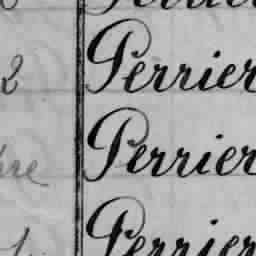 2 Perrier
bre Perrier
Perrier